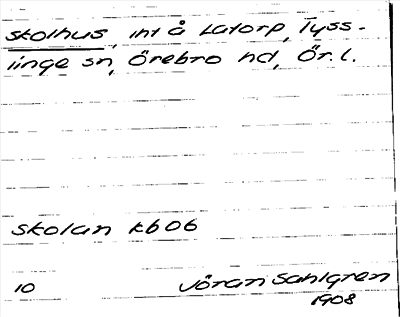 skolhus, int å Latorp, Tyss-
linge sn, Örebro hd, Ör. l.
skolan kb06
10 Jöran Sahlgren
1908